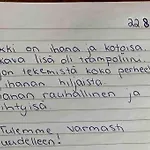 228
kki on ihana ja kotoisa
kava lisä oli trampoliini
jon tekemistä koko perhee
ihanan hiljaista
anan rauhallinen ja
ihtyisä
Tulemme varmasti
uudelleen!